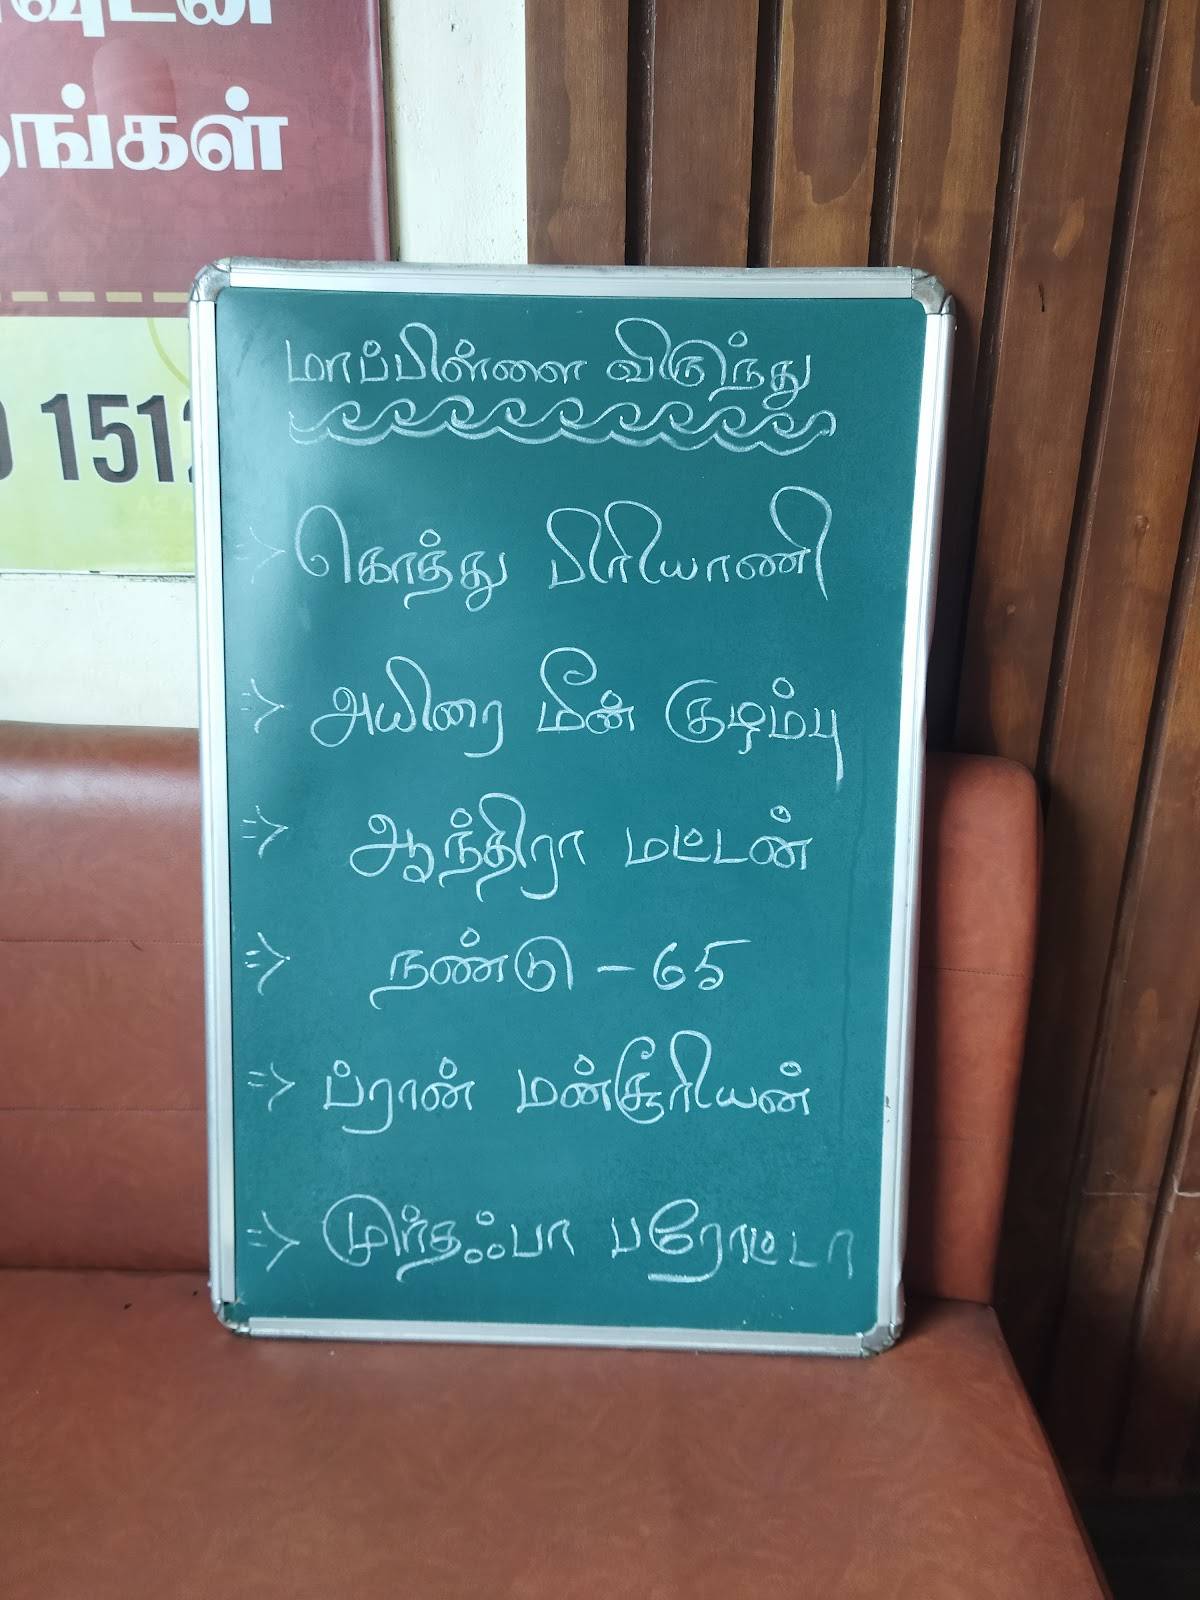 ங்கள்
151
மாப்பிள்ளை விருந்து
=> கொத்து பிரியாணி
=> அயிரை மீன் குழம்பு
=> ஆந்திரா மட்டன்
=> நண்டு - 65
=> ப்ரான் மன்சூரியன்
=> முர்தஃபா பரோட்டா